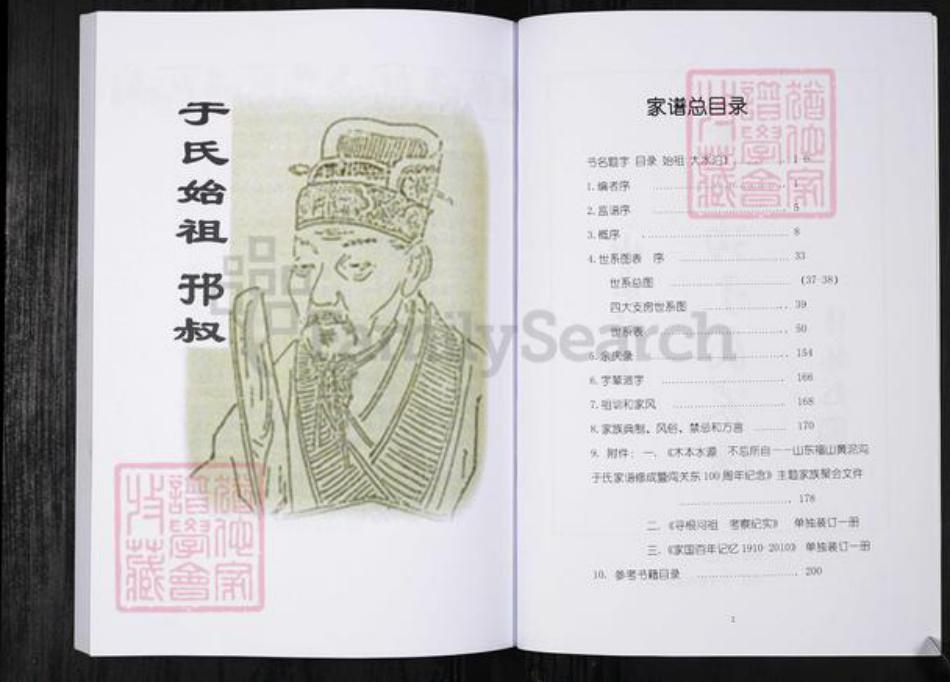 于氏始祖 邘叔
家谱总目录
书名题字 目录 始祖 大水泊 1-6
1.编者序 1
2.宫谱序 5
3.概序 8
4.世系图表 序 33
世系总图 (37-38)
四大支房世系图 39
世系表 50
5.余庆录 154
6.字辈派字 166
7.祖训和家风 168
8.家族典制、风俗、禁忌和方言 170
9. 附件: 一、《木本水源 不忘所自——山东福山黄泥沟
于氏家谱修成暨闯关东100周年纪念》主题家族聚会文件
178
二、《寻根问祖 考察纪实》 单独装订一册
三、《家国百年记忆1910-2010》 单独装订一册
10. 参考书籍目录 200
1
FamilySearch